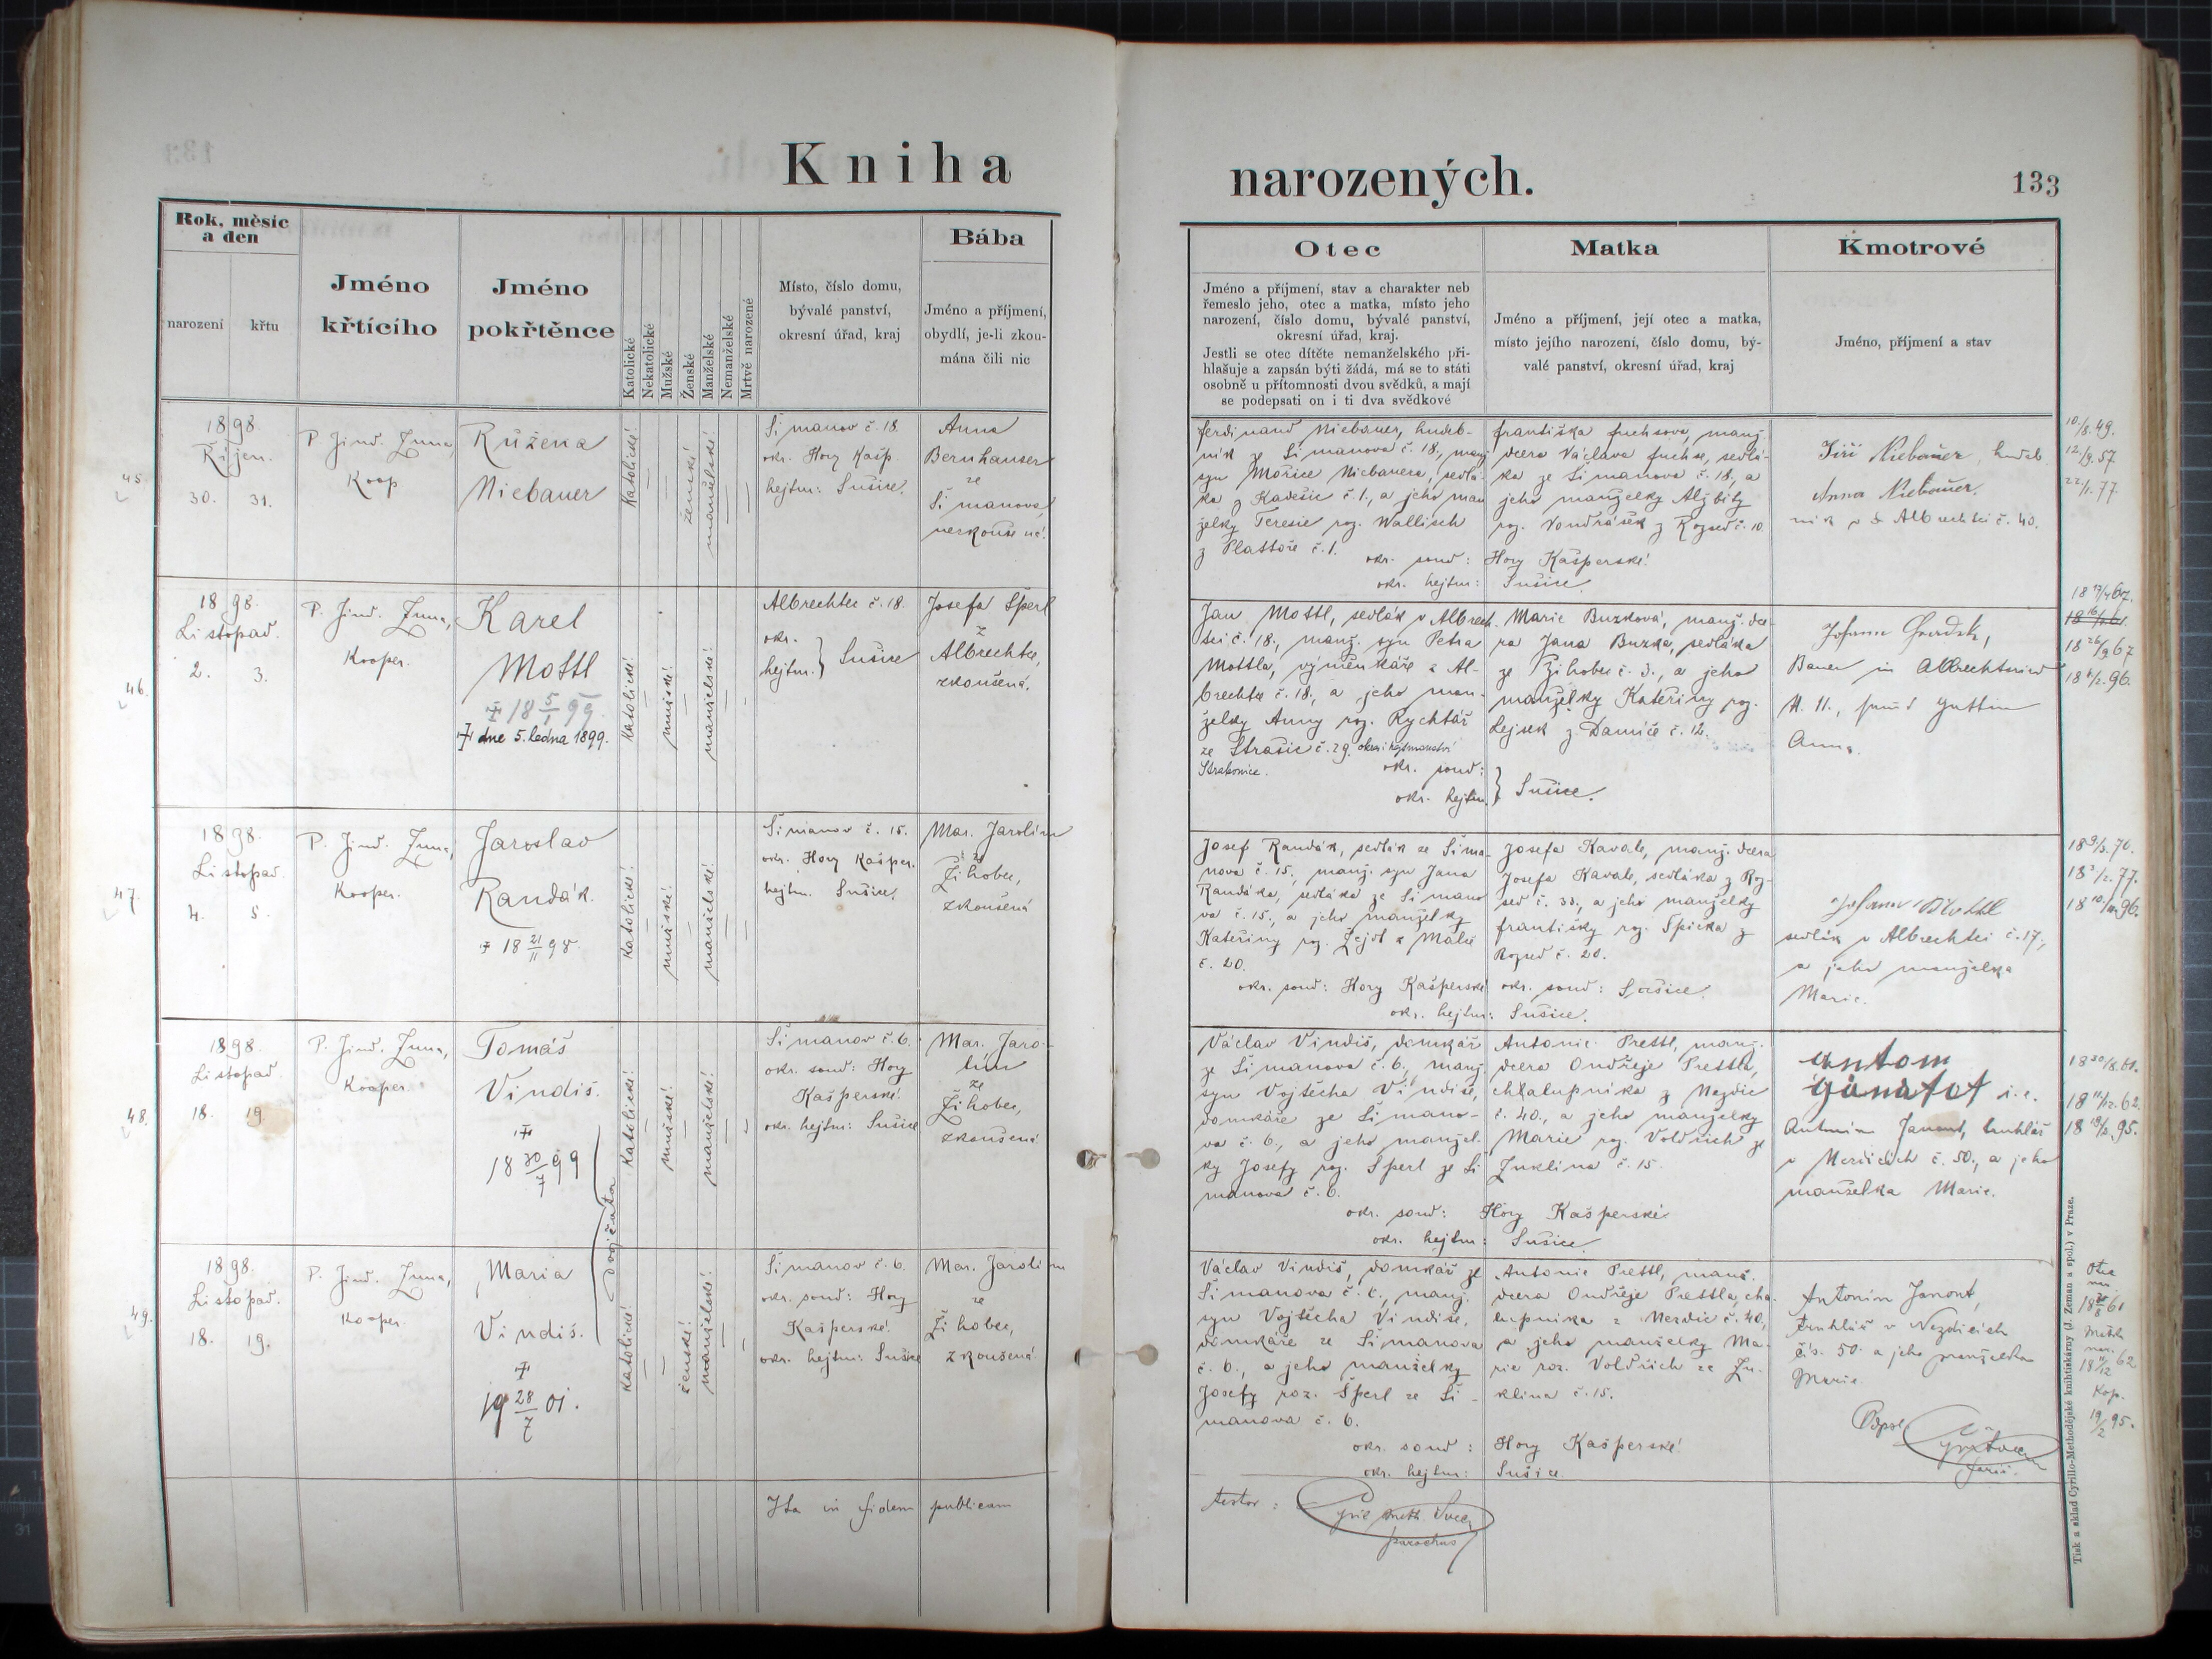 Kniha
narozených.
133
Rok, měsíc
a den
narození
křtu
Jméno
křtícího
Jméno
pokřtěnce
Katolické
Nekatolické
Mužské
Ženské
Manželské
Nemanželské
Mrtvě narozené
Místo, číslo domu,
bývalé panství,
okresní úřad, kraj
Bába
Jméno a příjmení,
obydlí, je-li zkou-
mána čili nic
Otec
Jméno a příjmení, stav a charakter neb
řemeslo jeho, otec a matka, místo jeho
narození, číslo domu, bývalé panství,
okresní úřad, kraj.
Jestli se otec dítěte nemanželského při-
hlašuje a zapsán býti žádá, má se to státi
osobně u přítomnosti dvou svědků, a mají
se podepsati on i ti dva svědkové
Matka
Jméno a příjmení, její otec a matka,
místo jejího narození, číslo domu, bý-
valé panství, okresní úřad, kraj
Kmotrové
Jméno, příjmení a stav
45
1898.
Říjen.
30. 31.
P. Jind. Zuna,
Koop
Růžena
Niebauer
Katolické!
ženské!
manželské!
Šimanov č. 18.
okr. Hory Kašp.
hejtm: Sušice.
Anna
Bernhauser
ze
Šimanova,
nezkouše né!
Ferdinand Niebauer, hudeb-
ník ze Šimanova č. 18., manž
syn Mořice Niebauera, sedlá-
ka z Kadešic č. 1., a jeho man
želky Teresie roz. Wallisch
z Plattoře č. 1.
okr. soud:
okr. hejtm:
Františka Fuchsova, manž.
dcera Václava Fuchse, sedlá-
ka ze Šimanova č. 18, a
jeho manželky Alžběty
roz. Vondrášek z Rozsed č. 10
Hory Kašperské!
Sušice.
Jiří Niebauer, hudeb
Anna Niebauer.
ník v Albrechtci č. 40.
10/8.49.
12/9.57.
22/1.77.
46.
1898.
Listopad.
2. 3.
P. Jind. Zuna,
Kooper.
Karel
Mottl
† 18 5/1 99.
† dne 5. ledna 1899.
Katolické!
mužské!
manželské!
Albrechtec č. 18.
okr.
hejtm. } Sušice
Josefa Šperl
z
Albrechtce,
zkoušená.
Jan Mottl, sedlák v Albrech-
tci č. 18., manž. syn Petra
Mottla, výměnkáře z Al-
brechtce č. 18, a jeho man-
želky Anny roz. Rychtář
ze Strašic č. 29. okres. hejtmanství
Strakonice.
okr. soud:
okr. hejtm.
Marie Buzková, manž. dce-
ra Jana Buzka, sedláka
ze Žihobec č. 3., a jeho
manželky Kateřiny roz.
Lejsek z Damíče č. 12.
} Sušice.
Bauer in Albrechtsried
N. 11.,
Anna.
18 26/9 67
47.
1898.
Listopad.
4. 5.
P. Jind. Zuna,
Kooper.
Jaroslav
Randák.
† 18 21/11 98.
Katolické!
mužské!
manželské!
Šimanov č. 15.
okr. Hory Kašper.
hejtm. Sušice.
Mar. Jarolím
ze
Žihobec,
zkoušená
Josef Randák, sedlák ze Šima-
nova č. 15., manž. syn Jana
Randáka, sedláka ze Šimano
va č. 15., a jeho manželky
Kateřiny roz. Zejdl z Málče
č. 20.
okr. soud: Hory Kašperské!
okr. hejtm:
Josefa Kavale, manž. dcera
Josefa Kavale, sedláka z Roz-
sed č. 33., a jeho manželky
Františky roz. Špička z
Rozsed č. 20.
okr. soud: Sušice.
Sušice.
Johann Mottl
sedlák v Albrechtci č. 17,
a jeho manželka
Marie.
18 9/3.70.
18 2/2.77.
48.
1898.
Listopad
18. 19.
P. Jind. Zuna,
Kooper.
Tomáš
Vindiš.
†
18 30/7 99
dvojčata
Katolické!
mužské!
manželské!
Šimanov č. 6.
okr. soud: Hory
Kašperské!
okr. hejtm: Sušice
Mar. Jaro-
lím
ze
Žihobec,
zkoušená
Václav Vindiš, domkář
ze Šimanova č. 6., manž.
syn Vojtěcha Vindiše,
domkáře ze Šimano-
va č. 6., a jeho manžel-
ky Josefy roz. Šperl ze Ši
manova č. 6.
okr. soud:
okr. hejtm:
Antonie Prettl, manž.
dcera Ondřeje Prettla,
chalupníka z Nezdic
č. 40., a jeho manželky
Marie roz. Voldřich ze
Zuklina č. 15.
Hory Kašperské
Sušice.
antom
ganatot i. e.
Antonín Janout, truhlář
v Nezdicích č. 50., a jeho
manželka Marie.
18 30/8.61.
18 11/12.62.
18 19/2.95.
49.
1898.
Listopad.
18. 19.
P. Jind. Zuna,
Kooper.
Maria
Vindiš.
†
19 28/7 01.
Katolické!
ženské!
manželské!
Šimanov č. 6.
okr. soud: Hory
Kašperské!
okr. hejtm: Sušice
Mar. Jarolím
ze
Žihobec,
zkoušená
Václav Vindiš, domkář ze
Šimanova č. 6., manž.
syn Vojtěcha Vindiše,
domkáře ze Šimanova
č. 6., a jeho manželky
Josefy roz. Šperl ze Ši-
manova č. 6.
okr. soud:
okr. hejtm:
Antonie Prettl, manž.
dcera Ondřeje Prettla, cha-
lupníka z Nezdic č. 40,
a jeho manželky Ma-
rie roz. Voldřich ze Zu-
klina č. 15.
Hory Kašperské!
Sušice.
Antonín Janout,
truhlář v Nezdicích
čís. 50. a jeho manželka
Marie.
Otec
nar.
18 30/8 61
Matka
nar.
18 11/12 62
Kop.
19/2 95.
farář.
Ita in fidem publicam
testor:
Cyril Meth. Švec
parochus
Tisk a sklad Cyrillo-Methodějské knihtiskárny (J. Zeman a spol.) v Praze.